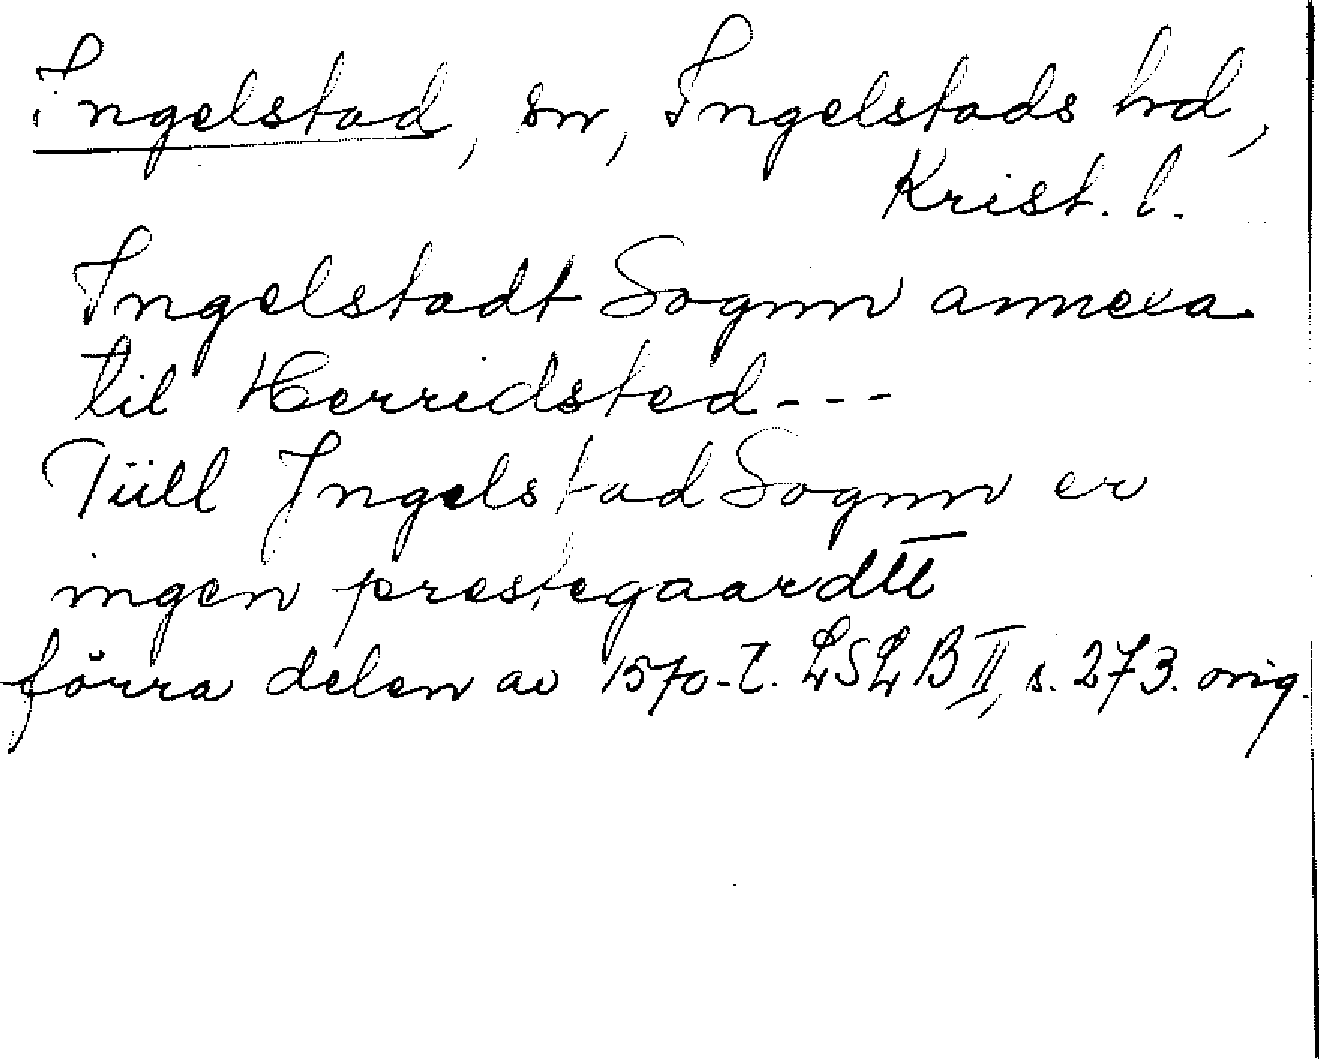 Ingelstad, sn, Ingelstads hd,
Krist. l.
Ingelstadt Sognn annexa
til Herridsted---
Tüll Ingelstad Sognn er
ingen prestegaardtt
förra delen av 1570-t. LSLB II, s. 273. orig.